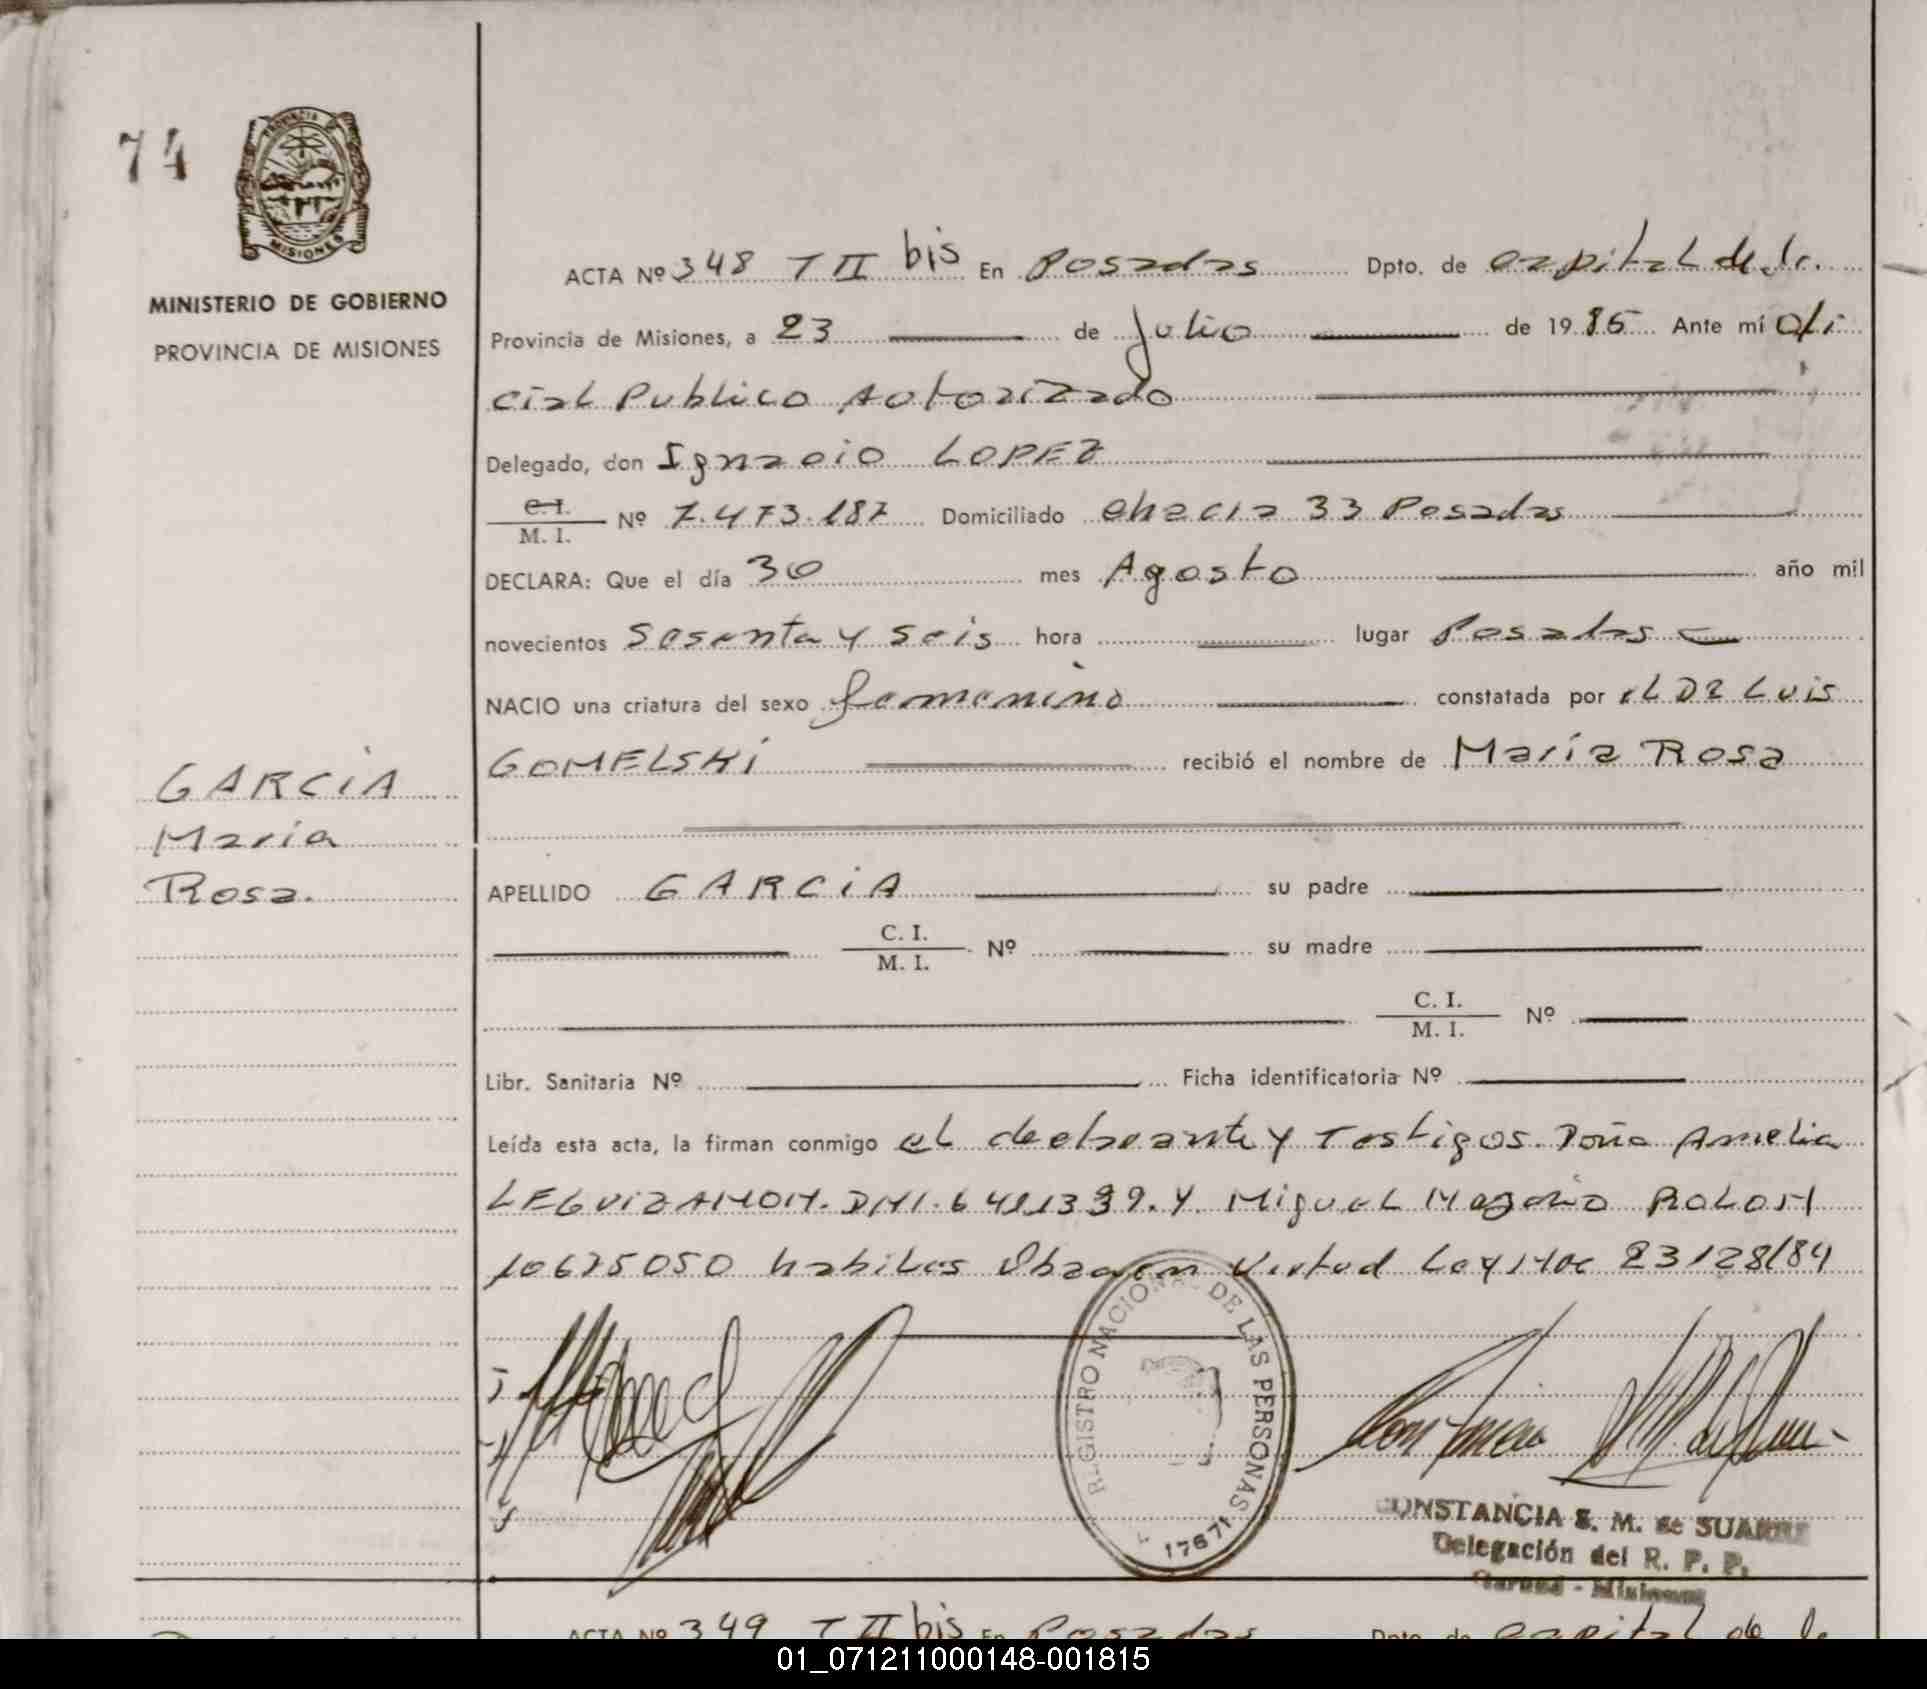 74
PROVINCIA DE
MISIONES
MINISTERIO DE GOBIERNO
PROVINCIA DE MISIONES
GARCIA
Maria
Rosa.
ACTA Nº 348 T II bis En Posadas Dpto. de capital de la
Provincia de Misiones, a 23 de Julio de 1985 Ante mí ofi
cial Publico Autorizado
Delegado, don Ignacio LOPEZ
C. I.
M. I. Nº 7.473.187 Domiciliado chacra 33 Posadas
DECLARA: Que el día 30 mes Agosto año mil
novecientos Sesenta y seis hora lugar Posadas
NACIO una criatura del sexo femenino constatada por el DR Luis
GOMELSKI recibió el nombre de María Rosa
APELLIDO GARCIA su padre
C. I.
M. I. Nº su madre
C. I.
M. I. Nº
Libr. Sanitaria Nº Ficha identificatoria Nº
Leída esta acta, la firman conmigo el declarante y Testigos Doña Amelia
LEGUIZAMON. DNI. y Miguel ROLON
10675050 habiles en Virtud Ley Nac 23128/84
REGISTRO NACIONAL DE LAS PERSONAS
17671
CONSTANCIA S. M. de SUAREZ
Delegación del R. P. P.
Garupá - Misiones
ACTA Nº 349 T II bis En Posadas Dpto. de capital de la
01_071211000148-001815